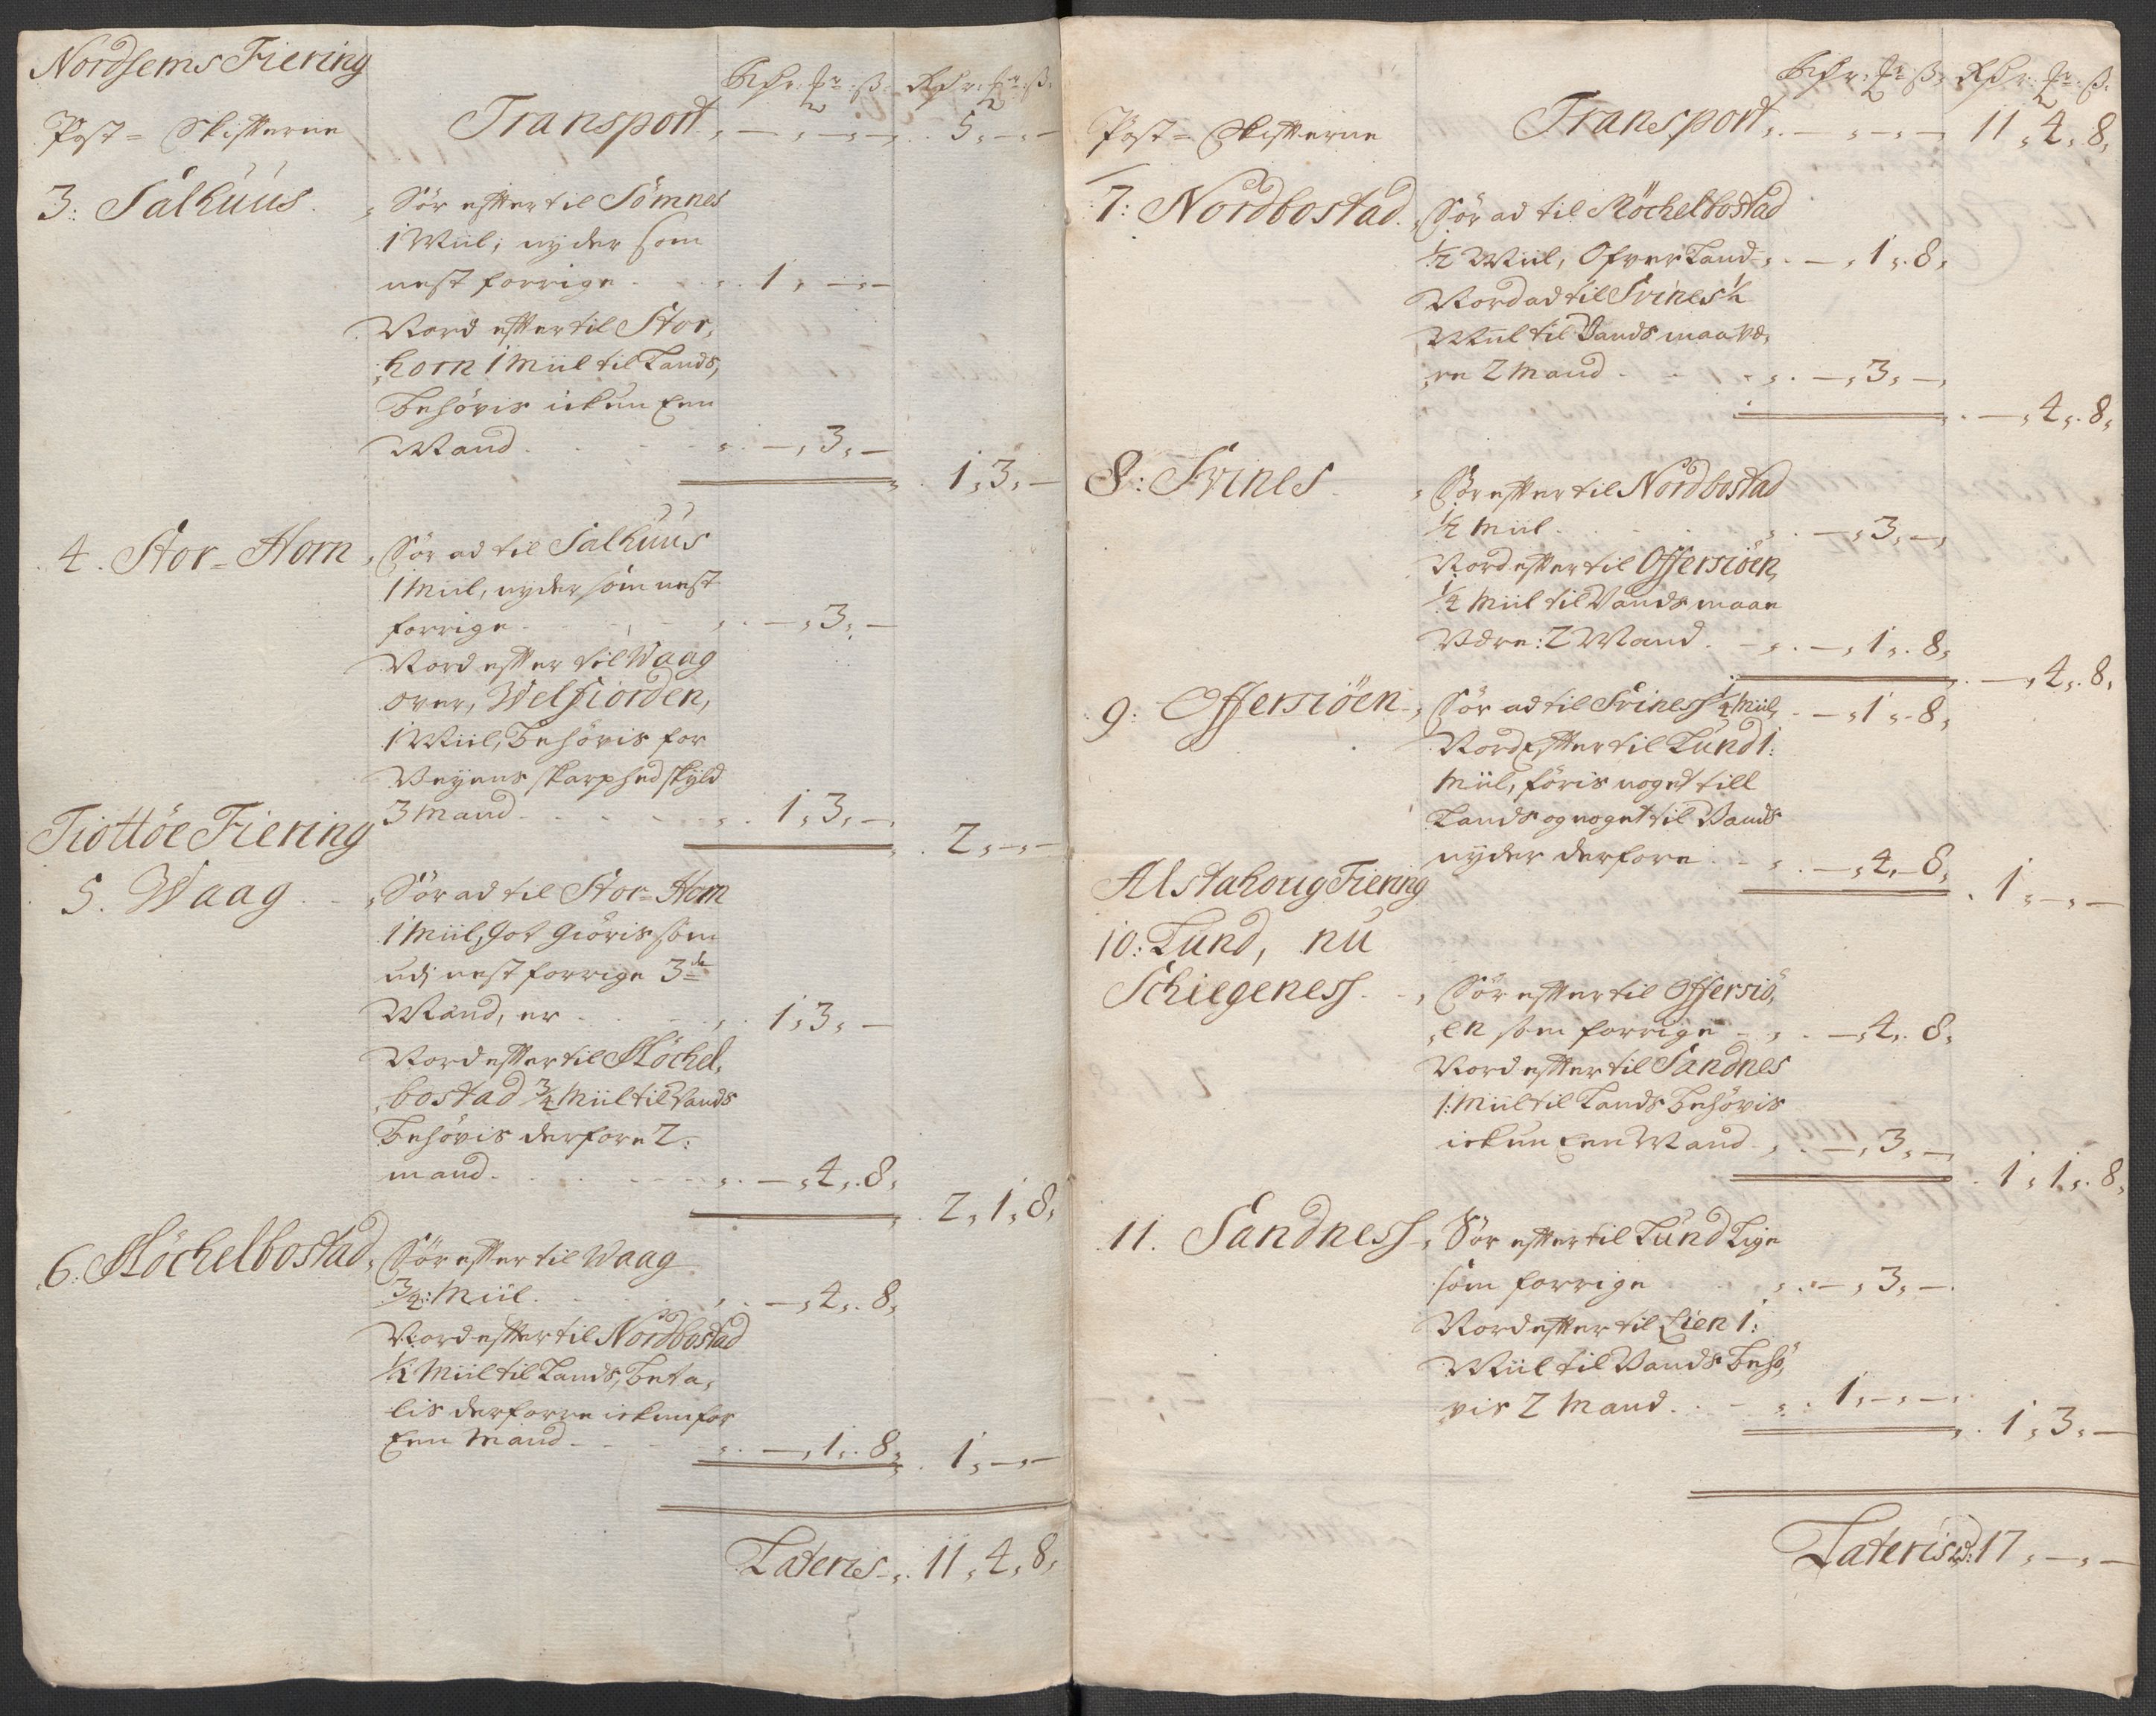 Nordsems Fiering
Rdr: Ort: ß: Rdr: Ort: ß:
Post= Skifterne Transport „ — „ — „ — „ 5 „ — „ —
3: Salhuus. „ Sør effter til Sömnes
1 Miil, nyder som
nest forrige „ 1 „ — „ —
Nord effter til Stor„
„horn 1 Miil til Lands,
behøvis ickun Een
Mand „ — „ 3 „ —
1 „ 3 „ —
4. Stor=Horn „ Sør ad til Salhuus
1 Miil, nyder som nest
forrige „ — „ 3 „ —
Nord effter til Waag
over, Welfiorden,
1 Miil, behøvis for
Veyens skarphed skyld
3 Mand „ 1 „ 3 „ —
2 „ — „ —
Tiottöe Fiering
5. Waag „ Sør ad til Stor=Horn
1 Miil, Got Giöris som
udj nest forrige 3de
Mand, er „ 1 „ 3 „ —
Nord effter til Höchel„
„bostad 3/4 Miil til Vands
behøvis derfore 2:
mand „ — „ 4 „ 8 „
2 „ 1 „ 8 „
6: Höchelbostad „ Sør effter til Waag
3/4: Miil „ — „ 4 „ 8 „
Nord effter til Nordbostad
1/2 Miil til Lands, beta„
lis derforre ickun for
Een Mand „ — „ 1 „ 8 „ 1 „ — „ —
Lateris „ 11 „ 4 „ 8 „
Rdr: Ort: ß: Rdr: Ort: ß:
Post= Skifterne Transport „ — „ — „ — 11 „ 4 „ 8 „
7: Nordbostad „ Sør ad til Möchelbostad
1/2 Miil, Ofver Land „ — „ 1 „ 8 „
Nord ad til Svines 1/2
Miil til Vands maa væ„
„re 2 Mand „ — „ 3 „ — „
— „ 4 „ 8 „
8: Svines „ Sør effter til Nordbostad
1/2 Miil „ — „ 3 „ — „
Nord effter til Offersiöen,
1/4 Miil til Vands maae
Være: 2 Mand „ — „ 1 „ 8 „
— „ 4 „ 8 „
9: Offersiöen „ Sør ad til Sviness 1/4 Miil, — „ 1 „ 8 „
Nord Effter til Lund 1:
Miil, föris noget till
Lands og noget til Vands
nyder derfore „ — „ 4 „ 8 „
1 „ — „ —
Alstahoug Fiering
10: Lund, nu
Schiegeness „ Sør effter til Offersiö„
„en som forrige „ — „ 4 „ 8 „
Nord effter til Sandnes
1: Miil til Lands behøvis
ickun Een Mand „ — „ 3 „ —
1 „ 1 „ 8 „
11. Sandness „ Sør effter til Lund Lige
som forrige „ — „ 3 „ —
Nord effter til Eien 1:
Miil til Vands behö„
vis 2 Mand „ 1 „ — „ —
1 „ 3 „ —
Lateris 17 „ — „ —